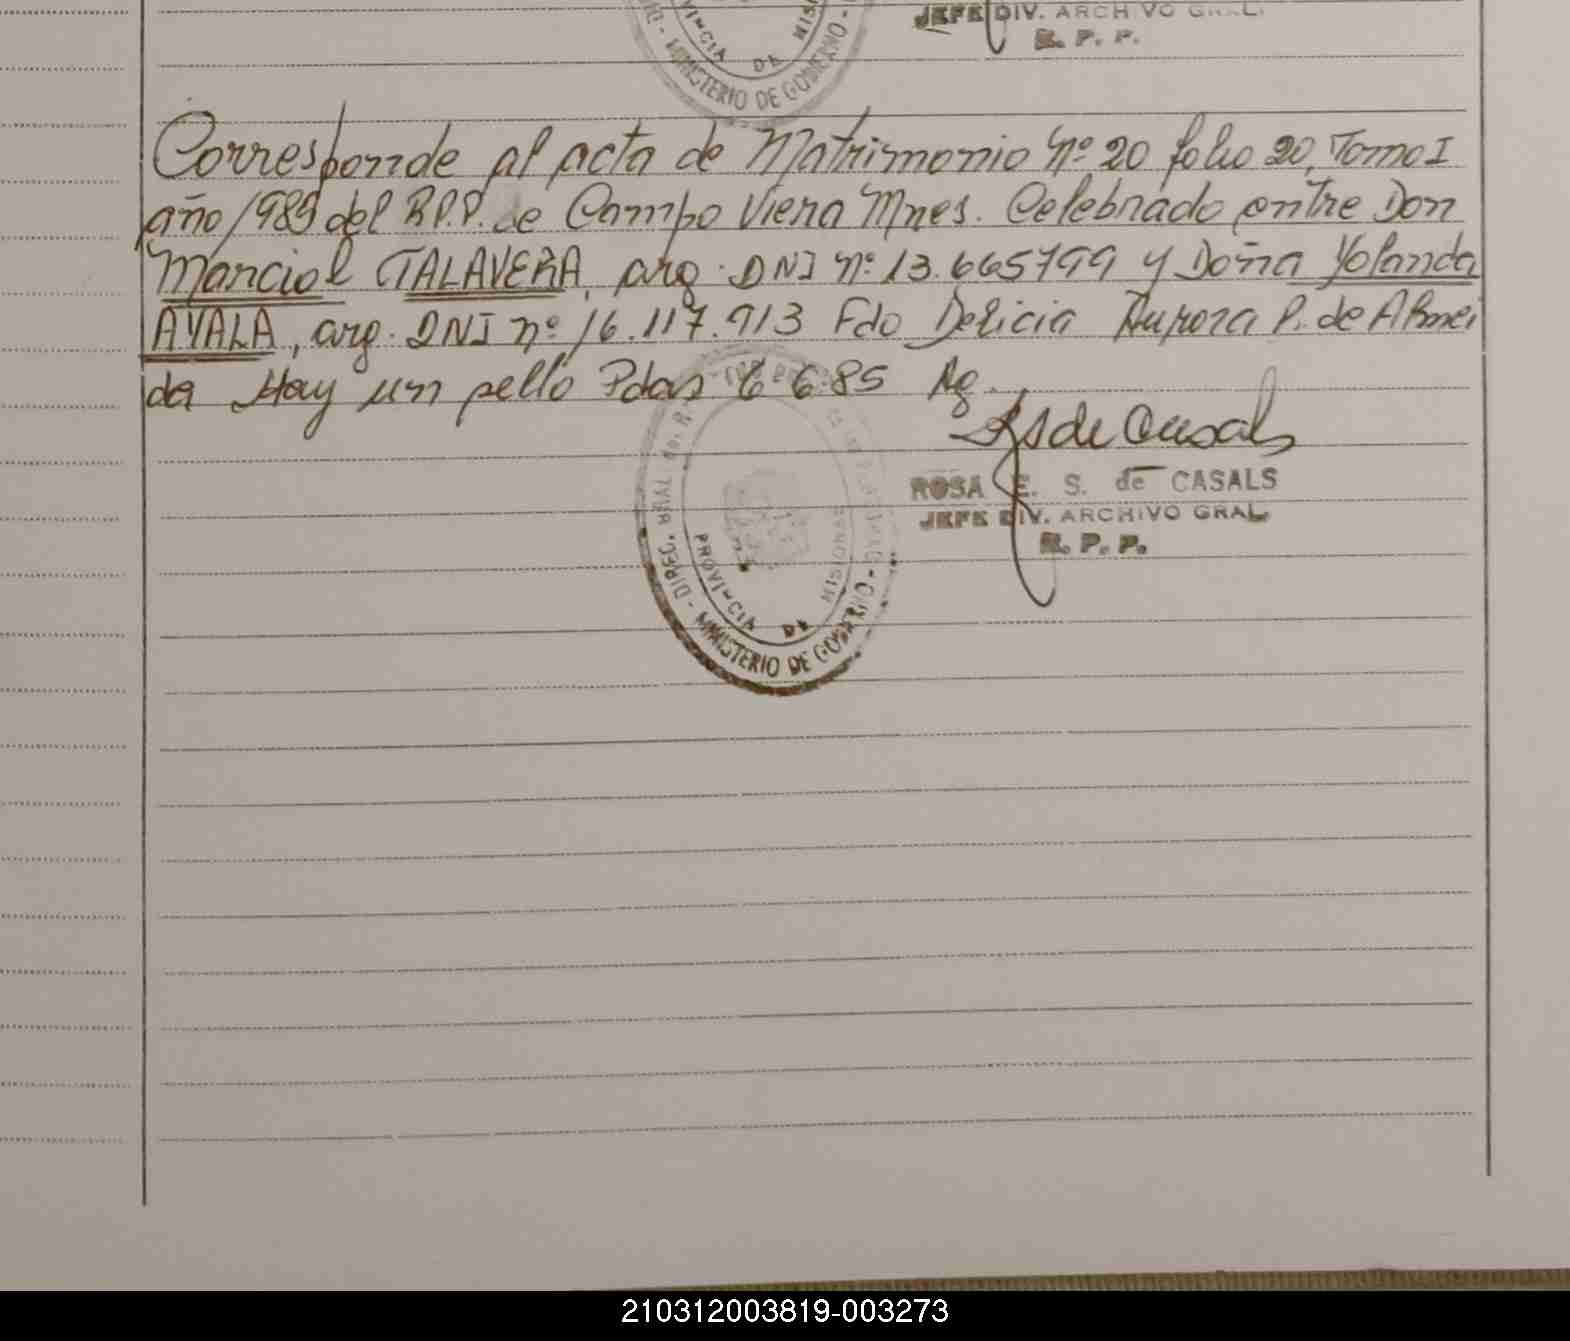 JEFE DIV. ARCHIVO GRAL.
R. P. P.
PROVINCIA DE MISIONES
MINISTERIO DE GOBIERNO
Corresponde al acta de Matrimonio Nº 20 folio 20, Tomo I
año 1985 del R.P.P. de Campo Viera Mnes. Celebrado entre Don
Marcial TALAVERA, arg. DNI nº 13.665799 y Doña Yolanda
AYALA, arg. DNI nº 16.117.913 Fdo Delicia Aurora P. de Almei
da Hay un sello Pdas 6 6 85
R S de Casals
ROSA E. S. de CASALS
JEFE DIV. ARCHIVO GRAL.
R. P. P.
PROVINCIA DE MISIONES
MINISTERIO DE GOBIERNO
210312003819-003273